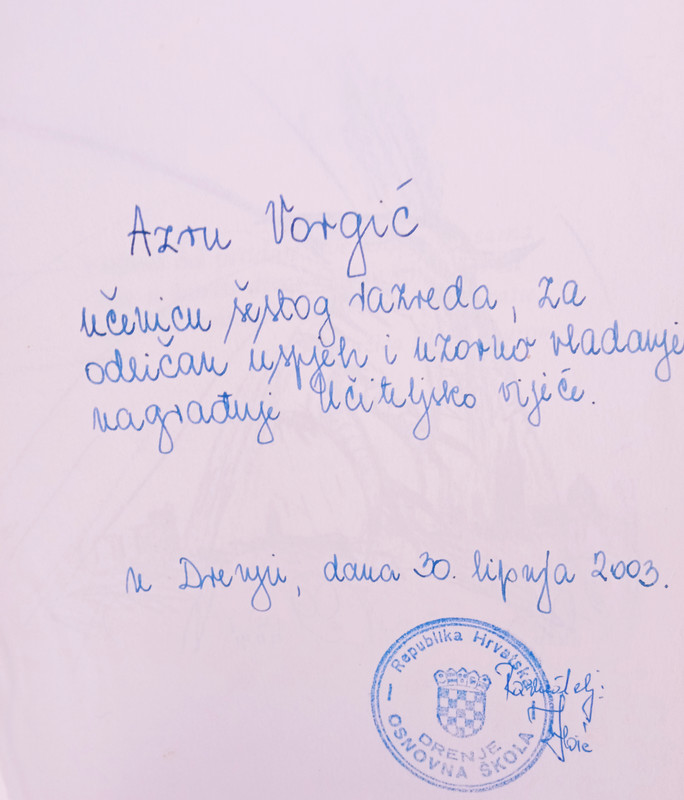 Azru Vorgić
učenicu šestog razreda, za
odličan uspjeh i uzorno vladanje
nagrađuje Učiteljsko vijeće.
u Drenju, dana 30. lipnja 2003.
Republika Hrvatska
DRENJE
OSNOVNA ŠKOLA
Razrednik: